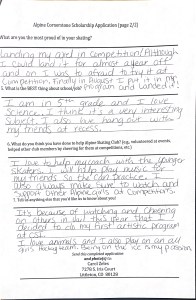 Alpine Cornerstone Scholarship Application (page 2/2)
What are you most proud of in your skating?
Landing my axel in competition! Although
I could land it for almost a year off
and on I was to afraid to try it at
Competition, finally in August I put it in my
5. What is the BEST thing about school/job? program and Landed it.
I am in 5th grade and I love
Science. I think it is a very interesting
subject. I also love hang out with
my friends at recess.
6. What do you do when you have time to help Alpine Skating Club?
I love to help my coach with the younger
skaters. I will help play music for
my friends so they can practice. I
also always make sure to watch and
support other Alpine girls at competitions.
7. Tell us anything else that you'd like us to know about you!
It's because of watching and cheering
on others in last this year that I
decided to do my first artistic program
at CSI.
I love animals and I also play on an all
girls hockey team. Being on the ice is my passion.
Send this completed application
Carol Zeles
7279 S. Iris Court
Littleton, CO 80128